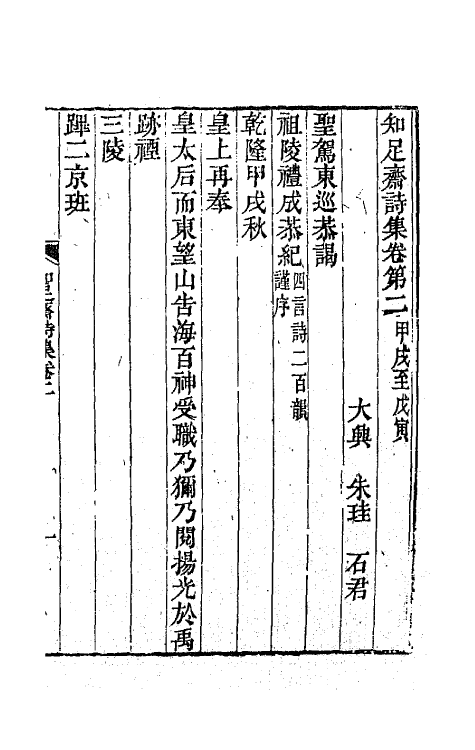 知足齋詩集卷第二 甲戌至戊寅
大興 朱珪 石君
聖駕東巡恭謁
祖陵禮成恭紀 四言詩二百韻
謹序
乾隆甲戌秋
皇上再奉
皇太后而東望山告海百神受職乃獮乃閱揚光於禹
跡禋
三陵
蹕二京班
知足齋詩集卷二
一